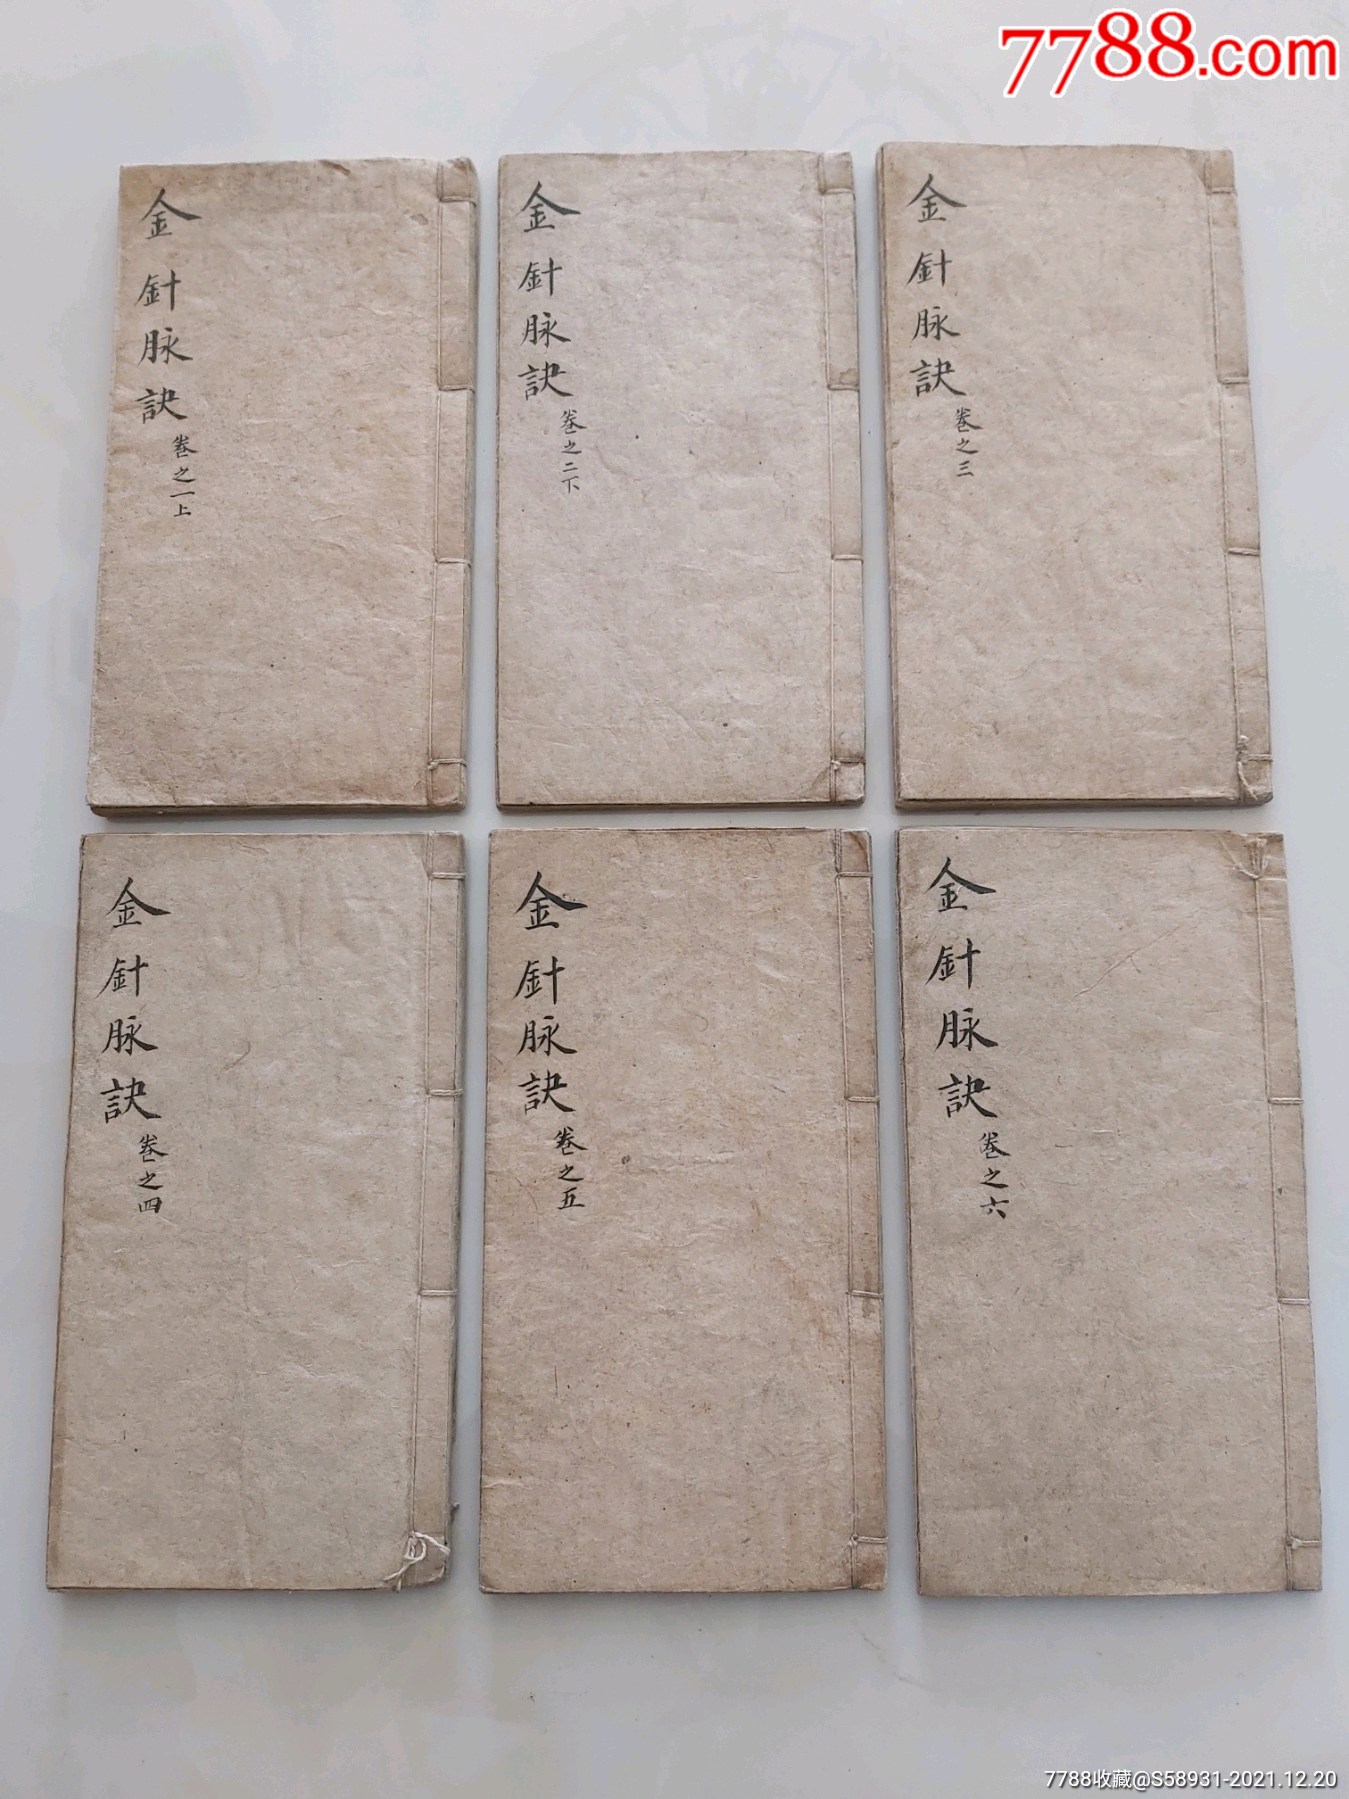 7788.com
金針脉訣
卷之一上
金針脉訣
卷之二下
金針脉訣
卷之三
金針脉訣
卷之四
金針脉訣
卷之五
金針脉訣
卷之六
7788收藏@S58931-2021.12.20